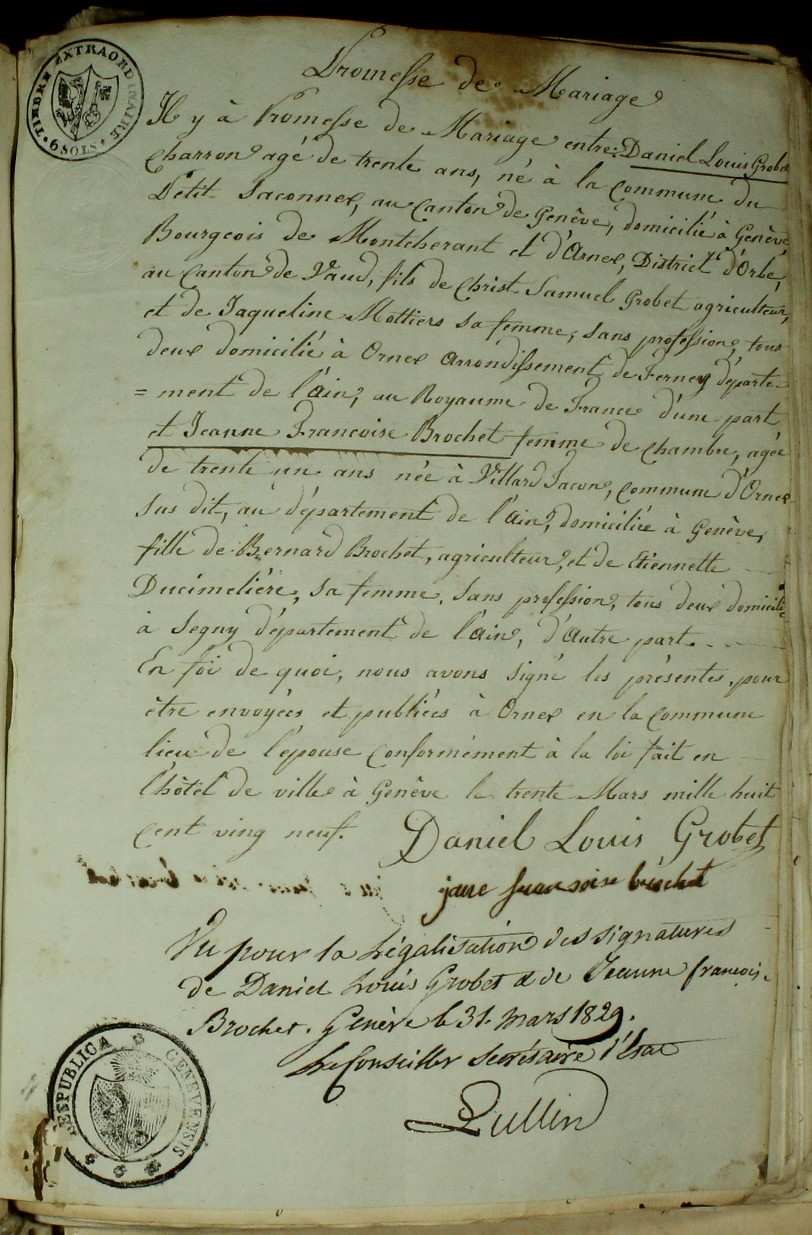 TIMBRE EXTRAORDINAIRE
6 SOLS
Promesse de Mariage
Il y à Promesse de Mariage entre: Daniel Louis Grobet
Charron agé de trente ans, né à la Commune du
Petit Saconnex, au Canton de Genêve, domicilié à Genêve,
Bourgeois de Montcherant et d'Arnex, District d'Orbe,
au Canton de Vaud, fils de Christ Samuel Grobet agriculteur,
et de Jaqueline Mottiers sa femme, sans profession, tous
deux domicilié à Ornex arrondissement de Ferney départe-
=ment de l'ain, au Royaume de France d'une part
et Jeanne Francoise Brochet femme de chambre, agée
de trente un ans née à Villard Tacon, commune d'Ornex
sus dit, au département de l'ain, domiciliée à Genêve,
fille de Bernard Brochet, agriculteur, et de Etiennette
Ducimeliére, sa femme, sans profession, tous deux domicilié
à Segny département de l'ain, d'Autre part.
En foi de quoi, nous avons signé les présentes, pour
être envoyées et publiées à Ornex en la commune
lieu de l'épouse conformément à la loi fait en
l'hôtel de ville à Genêve le trente Mars mille huit
cent ving neuf. Daniel Louis Grobet
jane fransoise brochet
Vu pour la Légalisation des signatures
de Daniel Louis Grobet & de Jeanne françoise
Brochet. Genève le 31. Mars 1829.
Le Conseiller Secrétaire d'Etat
Pullin
RESPUBLICA GENEVENSIS